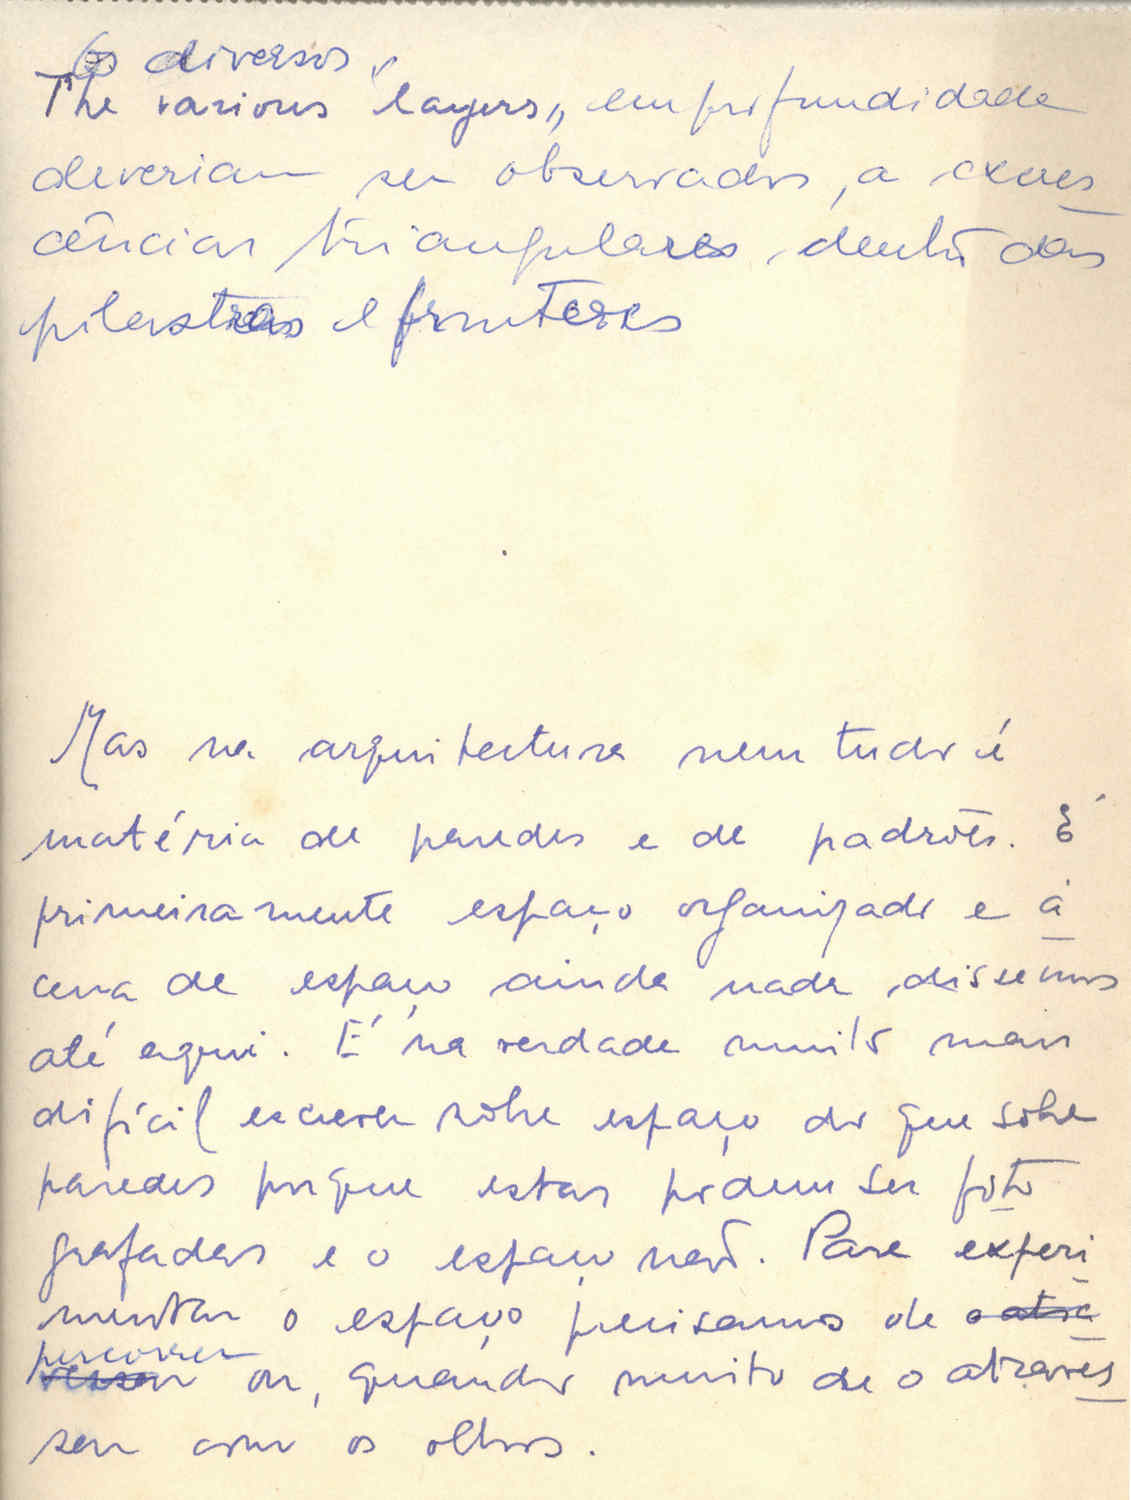 Os diversos
The various "layers", em profundidade
deveriam ser observados, a excres
cências triangulares, dentro das
pilastras e frontões
Mas na arquitectura nem tudo é
matéria de paredes e de padrões. É
primeiramente espaço organizado e à
cerca de espaço ainda nada dissemos
até aqui. É na verdade muito mais
difícil escrever sobre espaço do que sobre
paredes porque estas podem ser foto
grafadas e o espaço não. Para experi
mentar o espaço precisamos de o atra
percorrer
vessar ou, quando muito de o atraves
sar com os olhos.